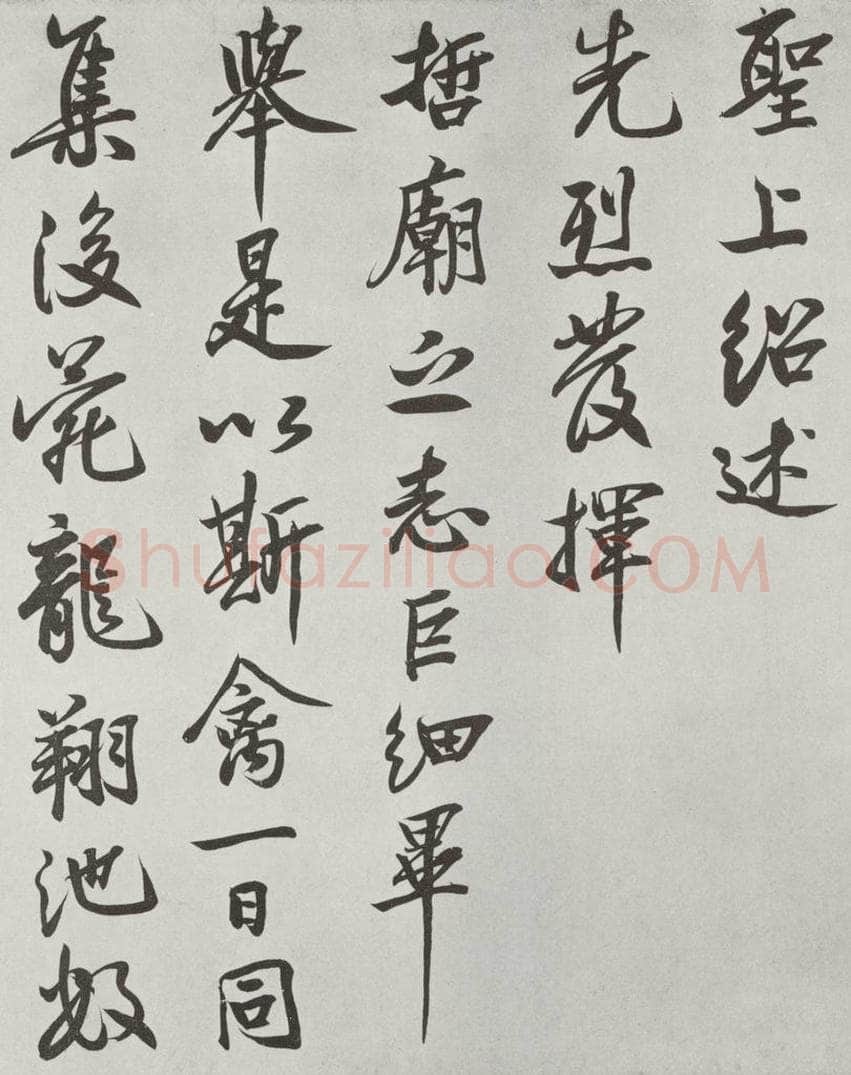 聖上紹述
先烈發揮
哲廟之志巨細畢
舉是以斯禽一日同
集後苑龍翔池數
Shufaziliao.COM